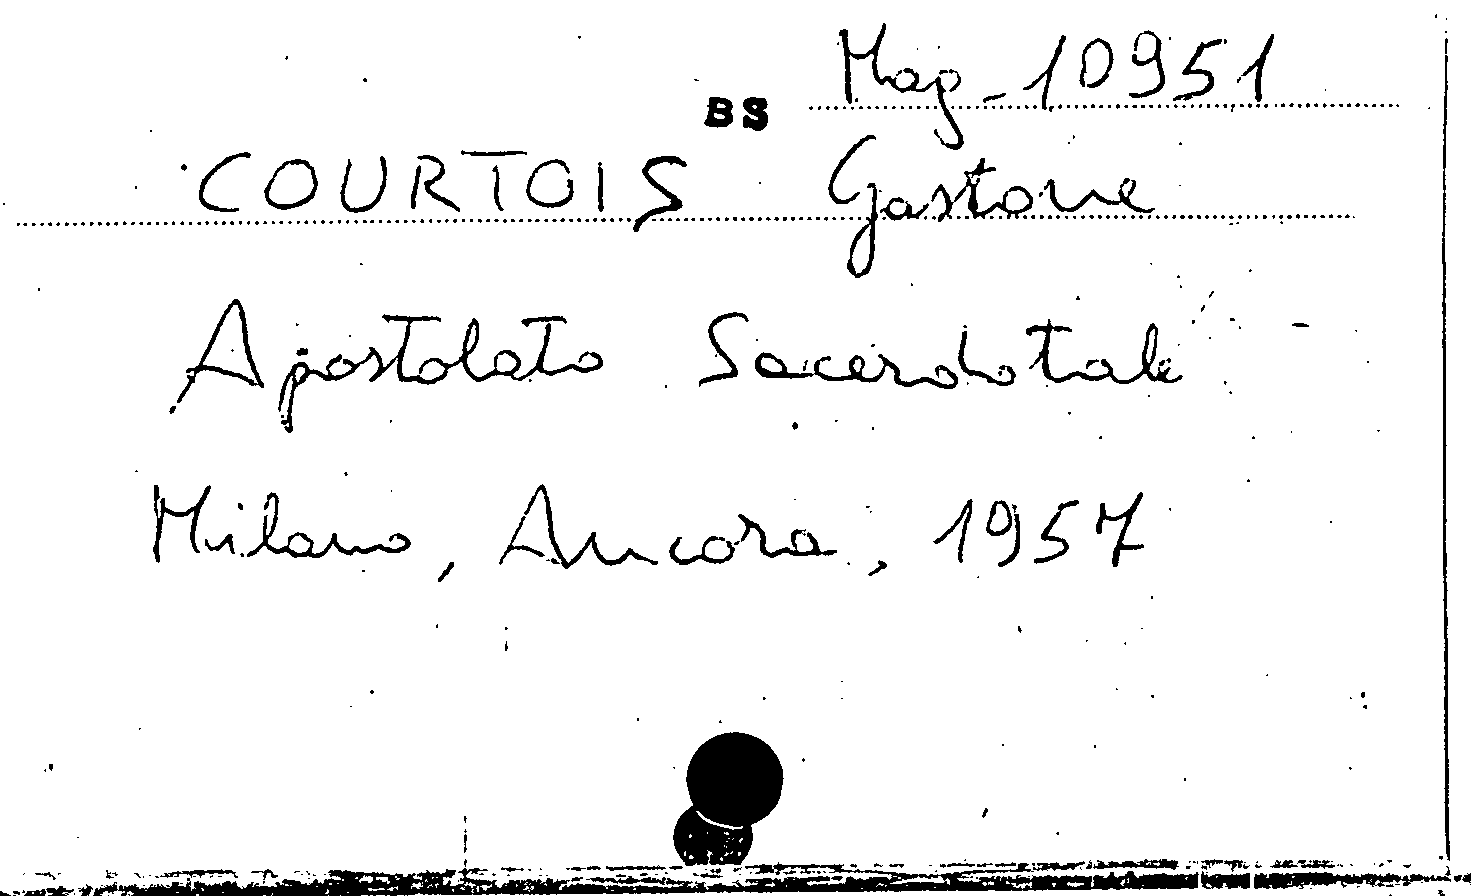 BS Mag-10951
COURTOIS Gastone
Apostolato Sacerdotale
Milano, Ancora, 1957